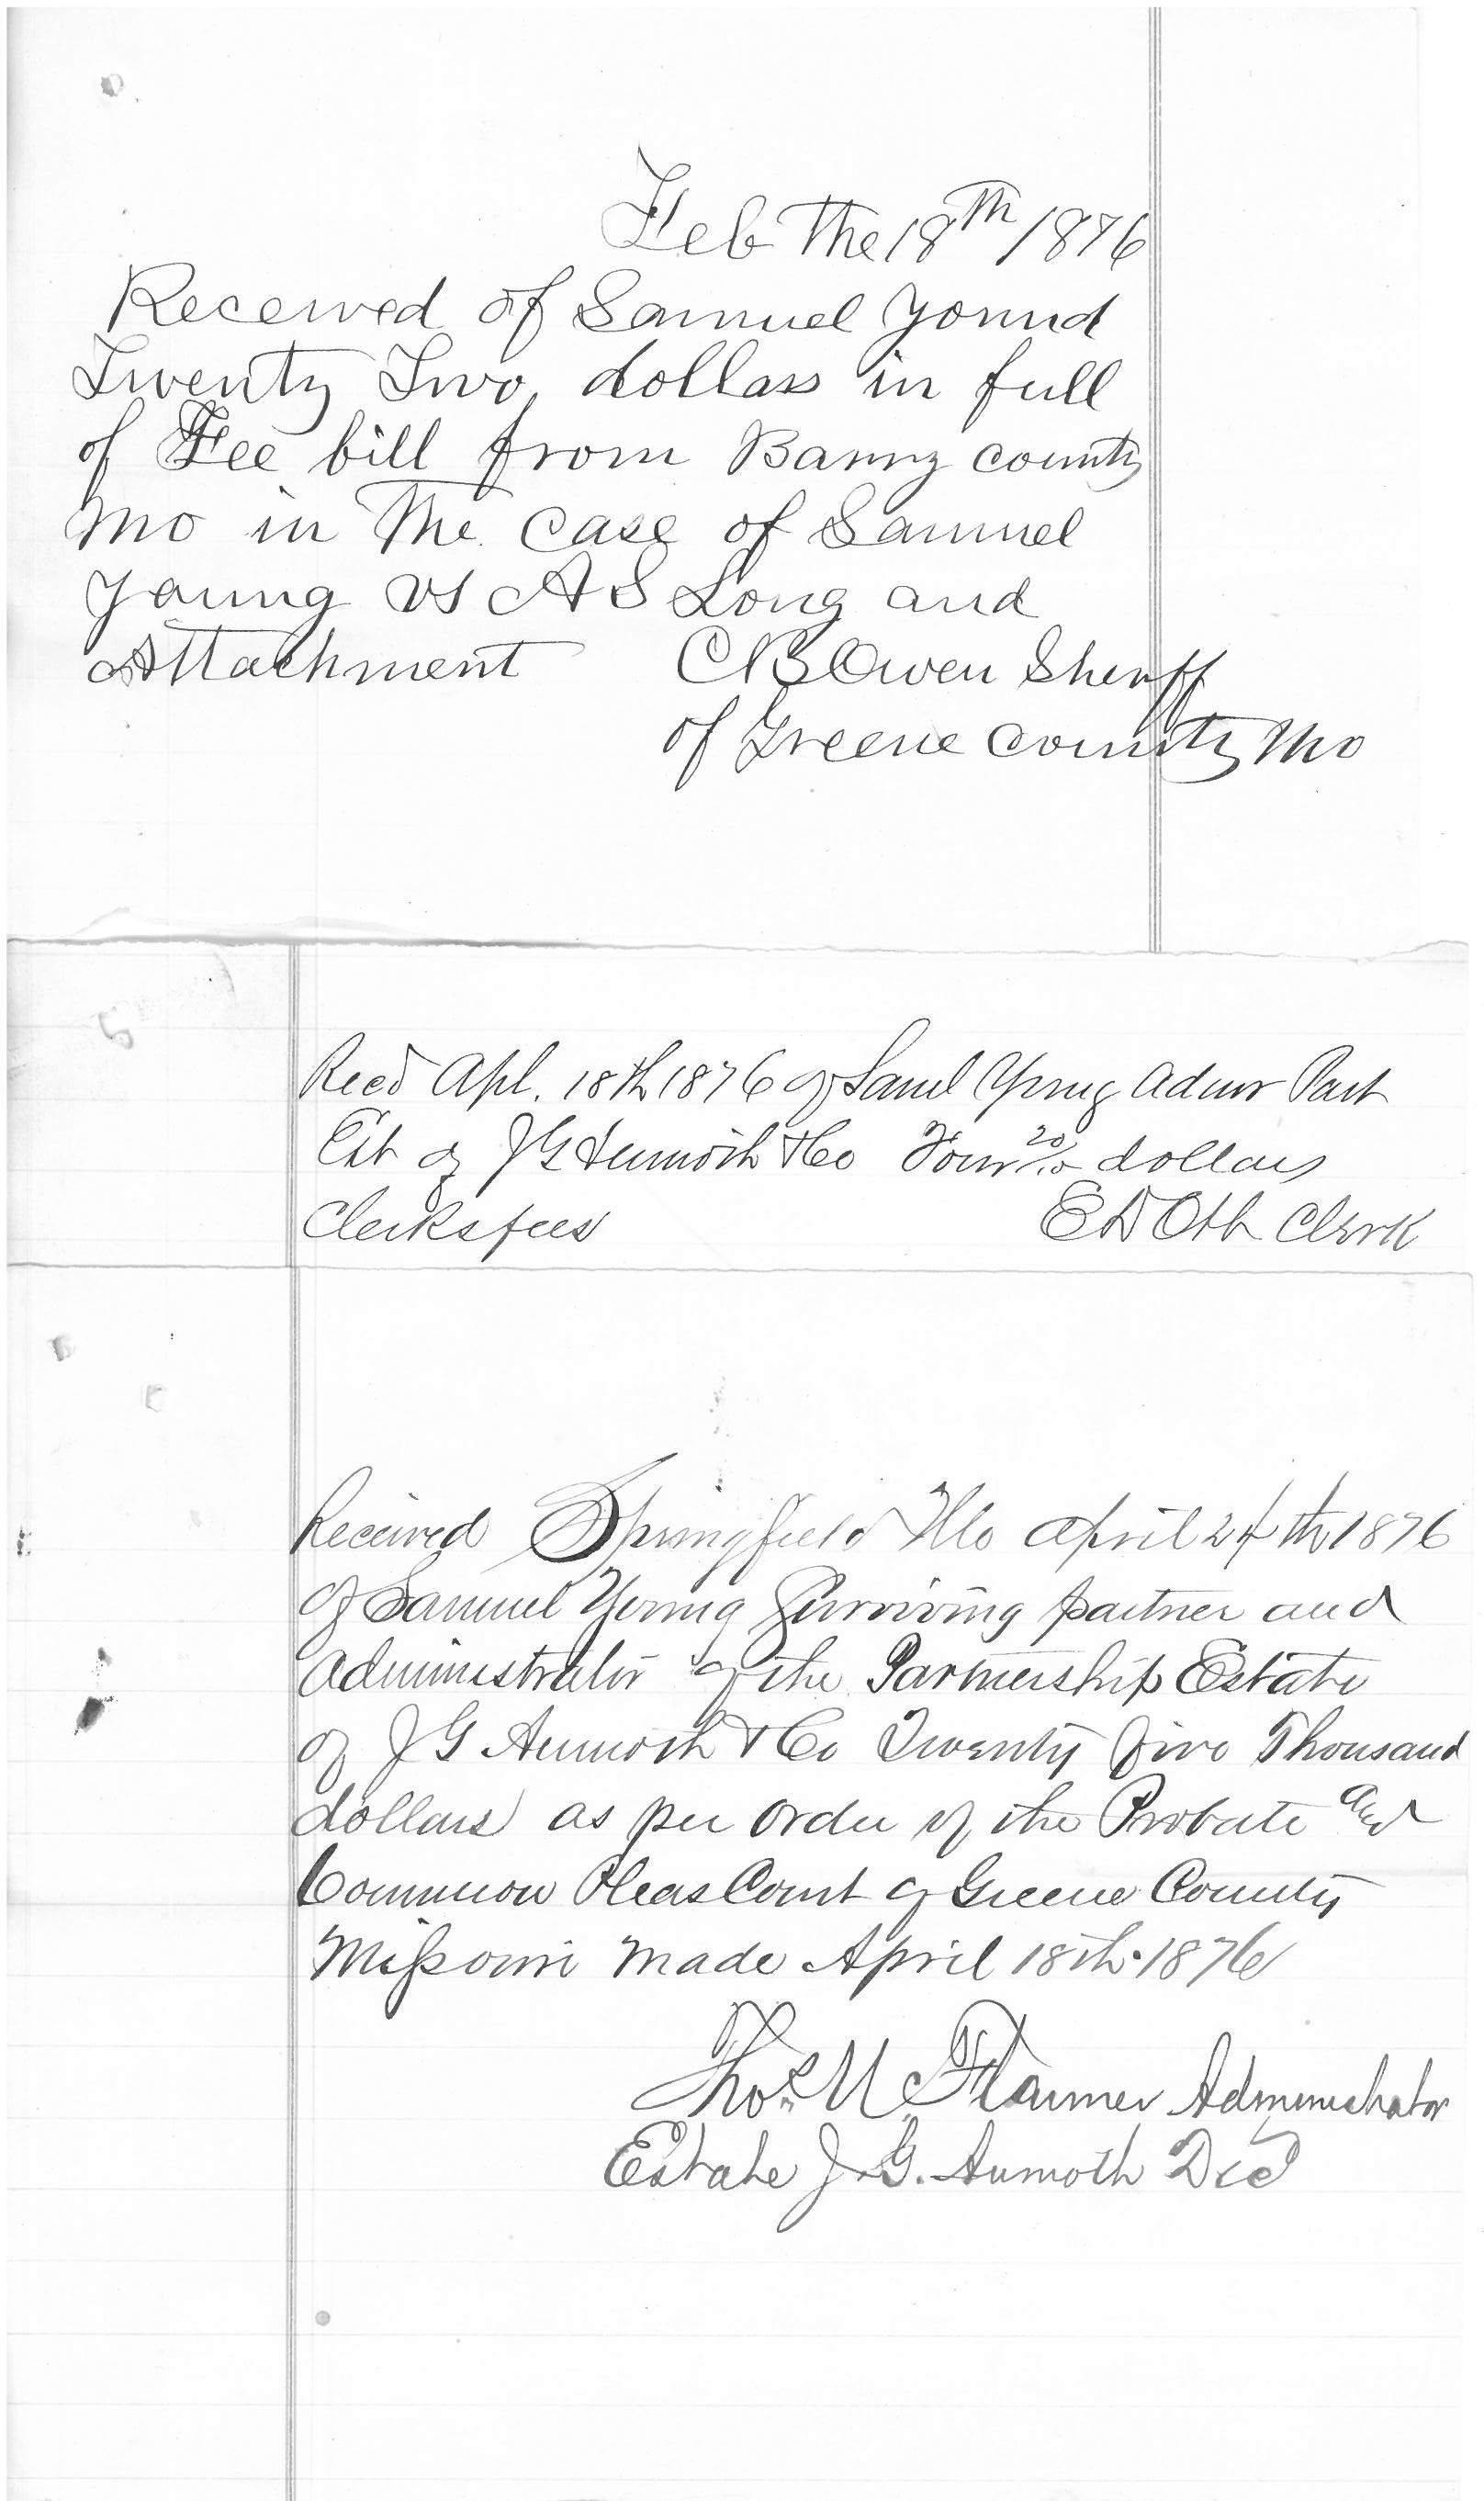 Feb The 18th 1876
Received of Samuel Yound
Twenty Two dollars in full
of Fee bill from Barry county
Mo in The case of Samuel
Young vs A S Long and
Attachment C B Owen Sheriff
of Greene county Mo
Recd Apl. 18th 1876 of Saml Young Admr Part
Est of J G & Co Four 20/100 dollars
Clerks fees E D Ott Clerk
Received Springfield Mo April 24th 1876
of Samuel Young Surviving partner and
Administrator of the Partnership Estate
of J G & Co Twenty five Thousand
dollars as per order of the Probate and
Common Pleas Court of Greene County
Missouri made April 18th 1876
Thos U Flanner Administrator
Estate J. G. Decd